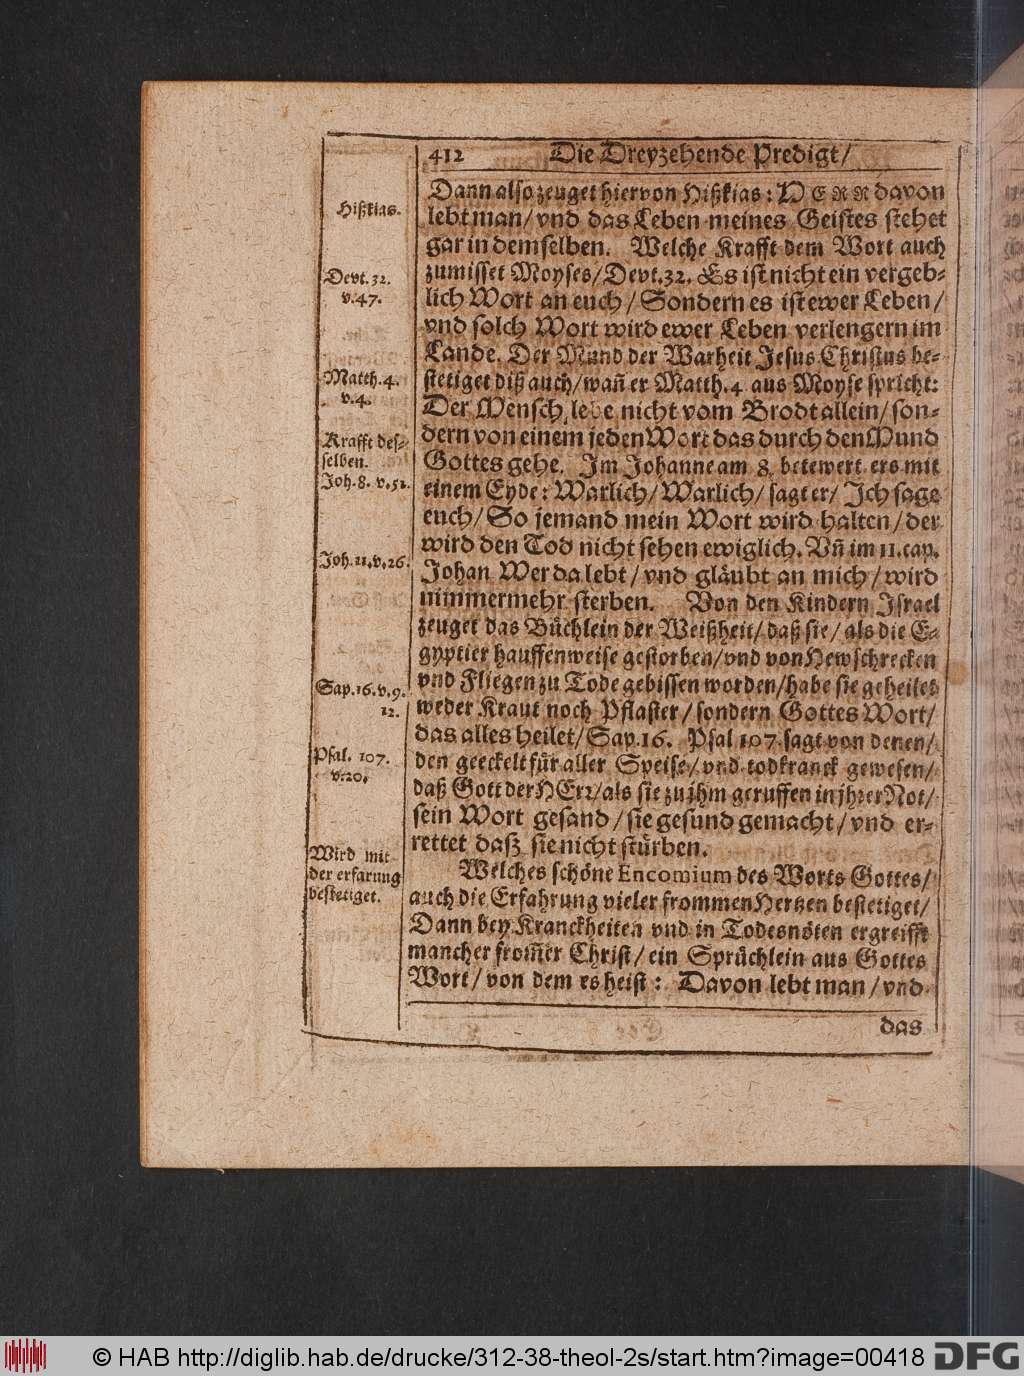 412 Die Dreyzehende Predigt/
Dann also zeuget hiervon Hißkias: HERR davon
lebt man/ vnd das Leben meines Geistes stehet
gar in demselben. Welche Krafft dem Wort auch
zumisset Moyses/ Devt.32. Es ist nicht ein vergeb-
lich Wort an euch/ Sondern es ist ewer Leben/
vnd solch Wort wird ewer Leben verlengern im
Lande. Der Mund der Warheit Jesus Christus be-
stetiget diß auch/ wañ er Matth.4 aus Moyse spricht:
Der Mensch lebe nicht vom Brodt allein/ son-
dern von einem jeden Wort das durch den Mund
Gottes gehe. Im Johanne am 8. betewert ers mit
einem Eyde: Warlich/ Warlich/ sagt er/ Ich sage
euch/ So jemand mein Wort wird halten/ der
wird den Tod nicht sehen ewiglich. Vñ im 11. cap.
Johan Wer da lebt/ vnd gläubt an mich/ wird
nimmermehr sterben. Von den Kindern Israel
zeuget das Büchlein der Weißheit/ daß sie/ als die E-
gyptier hauffenweise gestorben/ vnd von Hewschrecken
vnd Fliegen zu Tode gebissen worden/ habe sie geheilet
weder Kraut noch Pflaster/ sondern Gottes Wort/
das alles heilet/ Sap.16. Psal 107 sagt von denen/
den geeckelt für aller Speise/ vnd todkranck gewesen/
daß Gott der HErr/ als sie zu jhm geruffen in jhrer Not/
sein Wort gesand/ sie gesund gemacht/ vnd er-
rettet daß sie nicht stürben.
Welches schöne Encomium des Worts Gottes/
auch die Erfahrung vieler frommen Hertzen bestetiget/
Dann bey Kranckheiten vnd in Todesnöten ergreifft
mancher from̃er Christ/ ein Sprüchlein aus Gottes
Wort/ von dem es heist: Davon lebt man/ vnd
das
Hißkias.
Devt. 32.
v.47.
Matth.4.
v.4.
Krafft des-
selben.
Joh.8. v.51.
Joh.11.v.26.
Sap.16.v.9.
12.
Psal. 107.
v.20.
Wird mit
der erfarung
bestetiget.
© HAB http://diglib.hab.de/drucke/312-38-theol-2s/start.htm?image=00418 DFG